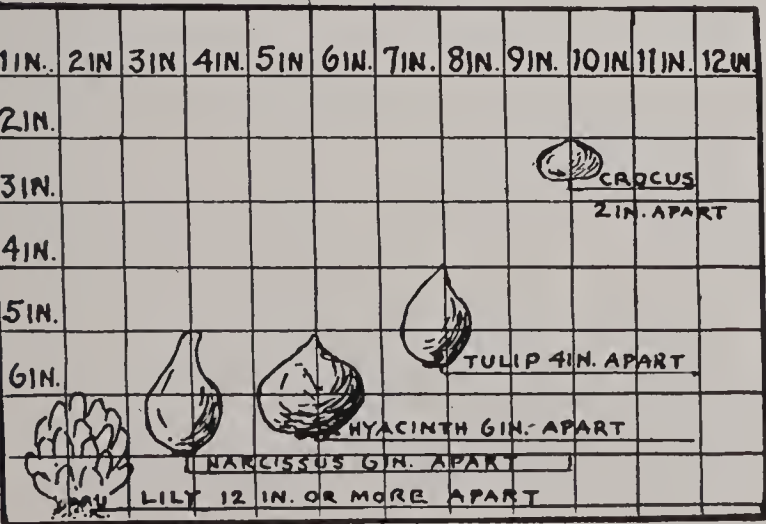 1IN. 2IN 3IN 4IN. 5IN 6IN. 7IN. 8IN. 9IN. 10IN. 11IN. 12IN.
2IN.
3IN.
CROCUS
2IN. APART
4IN.
5IN.
TULIP 4IN. APART
6IN.
HYACINTH 6IN. APART
NARCISSUS 6IN. APART
LILY 12 IN. OR MORE APART